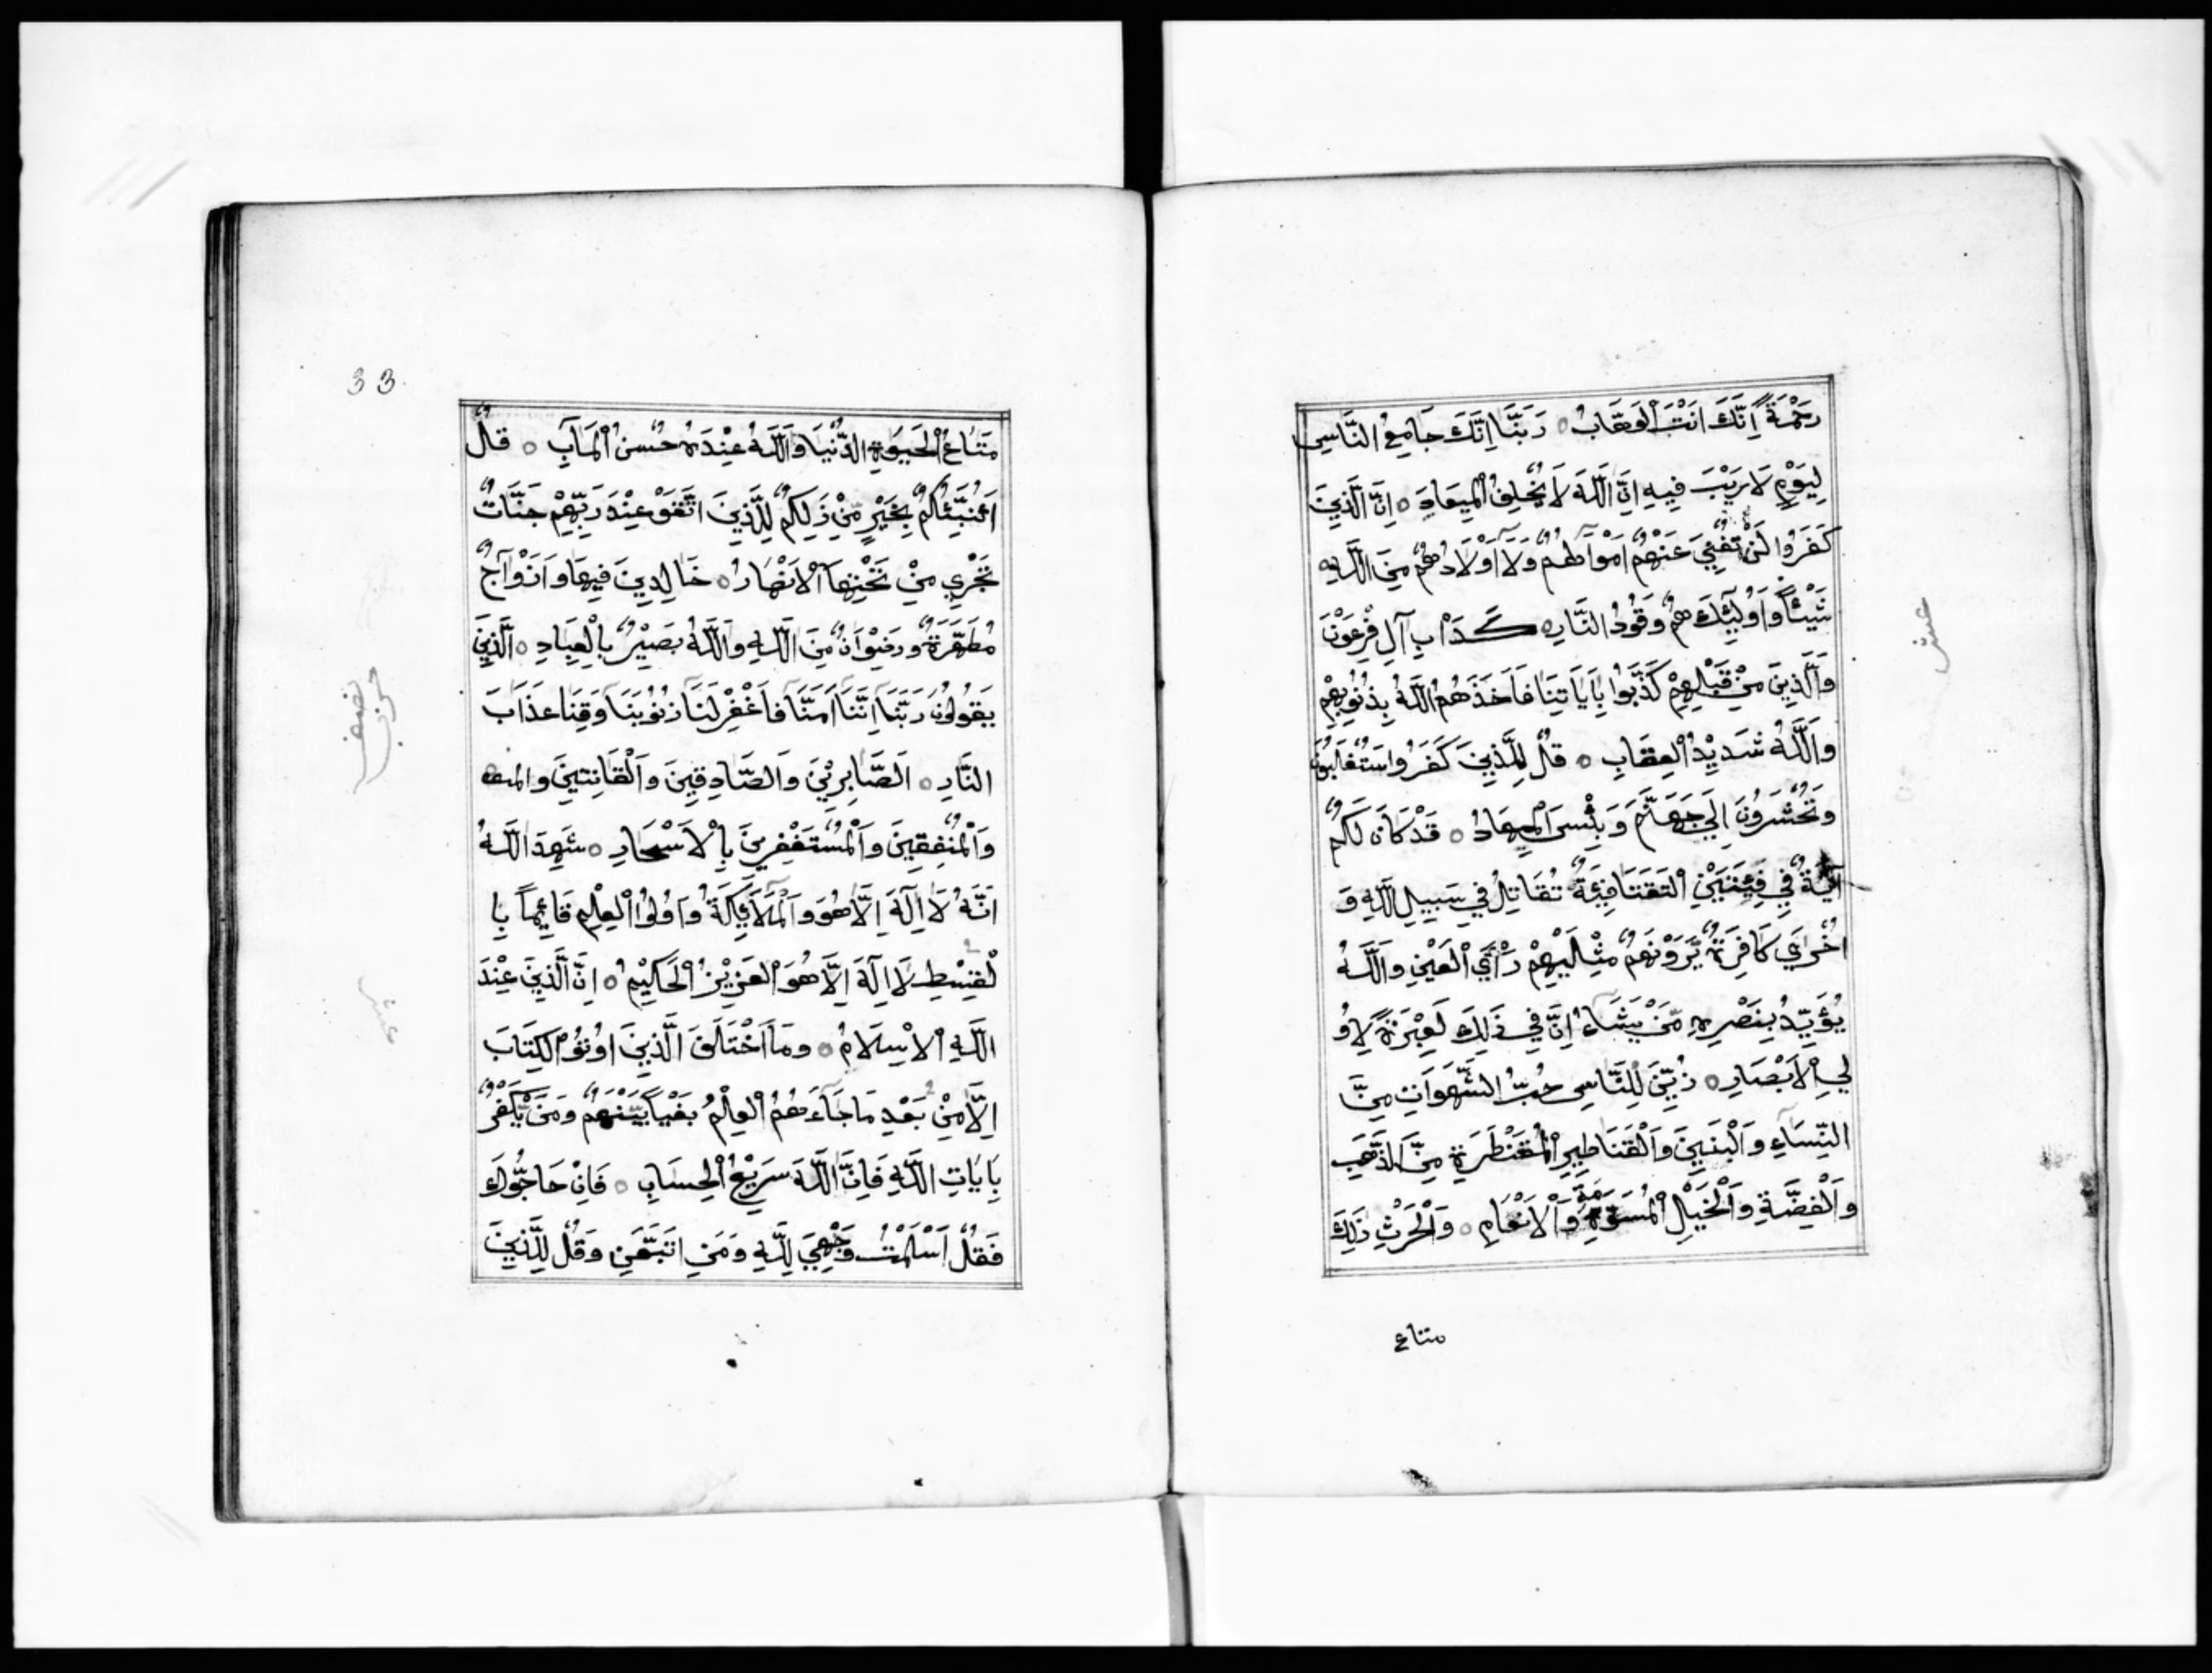 رَحْمَةً اِنَّكَ اَنْتَ الْوَهَّابُ ۝ رَبَّنَا اِنَّكَ جَامِعُ النَّاسِ
لِيَوْمٍ لَا رَيْبَ فِيهِ اِنَّ اللَّهَ لَا يُخْلِفُ الْمِيعَادَ ۝ اِنَّ الَّذِينَ
كَفَرُوا لَنْ تُغْنِيَ عَنْهُمْ اَمْوَالُهُمْ وَلَا اَوْلَادُهُمْ مِنَ اللَّهِ
شَيْئًا وَاُولَئِكَ هُمْ وَقُودُ النَّارِ ۝ كَدَاْبِ آلِ فِرْعَوْنَ
وَالَّذِينَ مِنْ قَبْلِهِمْ كَذَّبُوا بِاَيَاتِنَا فَاَخَذَهُمُ اللَّهُ بِذُنُوبِهِمْ
وَاللَّهُ شَدِيدُ الْعِقَابِ ۝ قُلْ لِلَّذِينَ كَفَرُوا سَتُغْلَبُونَ
وَتُحْشَرُونَ اِلَي جَهَنَّمَ وَبِئْسَ الْمِهَادُ ۝ قَدْ كَانَ لَكُمْ
آيَةٌ فِي فِئَتَيْنِ الْتَقَتَا فِئَةٌ تُقَاتِلُ فِي سَبِيلِ اللَّهِ وَ
اُخْرَي كَافِرَةٌ يَّرَوْنَهُمْ مِثْلَيْهِمْ رَاْيَ الْعَيْنِ وَاللَّهُ
يُؤَيِّدُ بِنَصْرِهِ مَنْ يَشَاءُ اِنَّ فِي ذَلِكَ لَعِبْرَةً لِاُو
لِي الْاَبْصَارِ ۝ زُيِّنَ لِلنَّاسِ حُبُّ الشَّهَوَاتِ مِنَ
النِّسَاءِ وَالْبَنِينَ وَالْقَنَاطِيرِ الْمُقَنْطَرَةِ مِنَ الذَّهَبِ
وَالْفِضَّةِ وَالْخَيْلِ الْمُسَوَّمَةِ وَالْاَنْعَامِ ۝ وَالْحَرْثِ ذَلِكَ
متاع
33
مَتَاعُ الْحَيَوةِ الدُّنْيَا وَاللَّهُ عِنْدَهُ حُسْنُ الْمَآبِ ۝ قُلْ
اَؤُنَبِّئُكُمْ بِخَيْرٍ مِّنْ ذَلِكُمْ لِلَّذِينَ اتَّقَوْ عِنْدَ رَبِّهِمْ جَنَّاتٌ
تَجْرِي مِنْ تَحْتِهَا الْاَنْهَارُ ۝ خَالِدِينَ فِيهَا وَاَزْوَاجٌ
مُطَهَّرَةٌ وَرِضْوَانٌ مِنَ اللَّهِ وَاللَّهُ بَصِيْرٌ بِالْعِبَادِ ۝ الَّذِينَ
يَقُولُونَ رَبَّنَا اِنَّنَا اَمَنَّا فَاغْفِرْ لَنَا ذُنُوبَنَا وَقِنَا عَذَابَ
النَّارِ ۝ الصَّابِرِيْنَ وَالصَّادِقِينَ وَالْقَانِتِينَ والمنـ
وَالْمُنْفِقِينَ وَالْمُسْتَغْفِرِينَ بِالْاَسْحَارِ ۝ شَهِدَ اللَّهُ
اَنَّهُ لَا اِلَهَ اِلَّا هُوَ وَالْمَلَائِكَةُ وَاُولُوا الْعِلْمِ قَائِمًا بِا
لْقِسْطِ لَا اِلَهَ اِلَّا هُوَ الْعَزِيْزُ الْحَكِيْمُ ۝ اِنَّ الَّذِينَ عِنْدَ
اللَّهِ الْاِسْلَامُ ۝ وَمَا اخْتَلَفَ الَّذِينَ اُوتُوْا الْكِتَابَ
اِلَّا مِنْ بَعْدِ مَا جَاءَهُمُ الْعِلْمُ بَغْيًا بَيْنَهُمْ وَمَنْ يَّكْفُرْ
بِاَيَاتِ اللَّهِ فَاِنَّ اللَّهَ سَرِيْعُ الْحِسَابِ ۝ فَاِنْ حَاجُّوكَ
فَقُلْ اَسْلَمْتُ وَجْهِيَ لِلَّهِ وَمَنِ اتَّبَعَنِ وَقُلْ لِلَّذِينَ
نصف
حزب